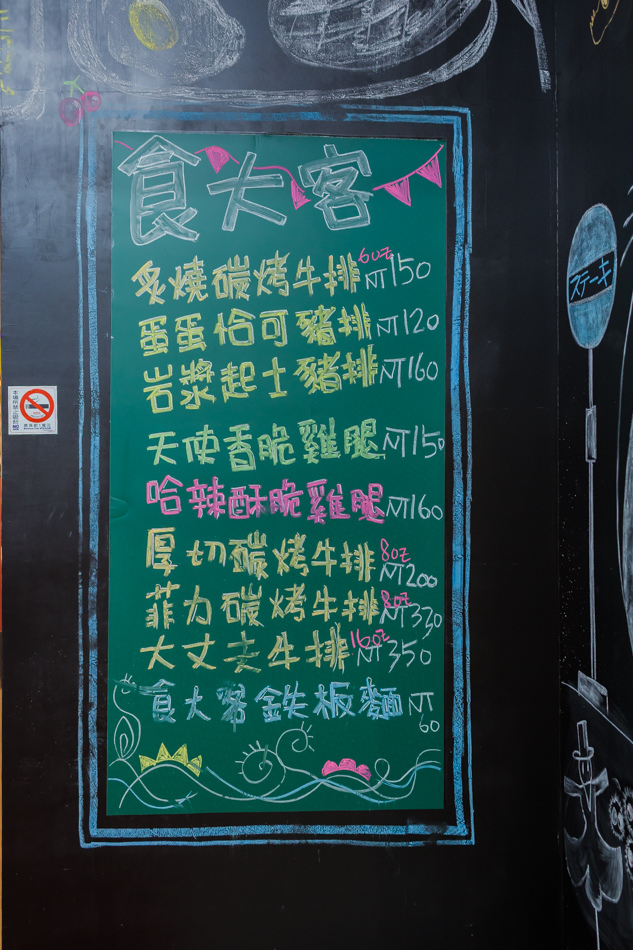 食大客
炙燒碳烤牛排6oz NT150
蛋蛋恰可豬排NT120
岩漿起士豬排NT160
天使香脆雞腿NT150
哈辣酥脆雞腿NT160
厚切碳烤牛排8oz NT200
菲力碳烤牛排8oz NT330
大丈夫牛排16oz NT350
食大客鉄板麵NT60
ステーキ